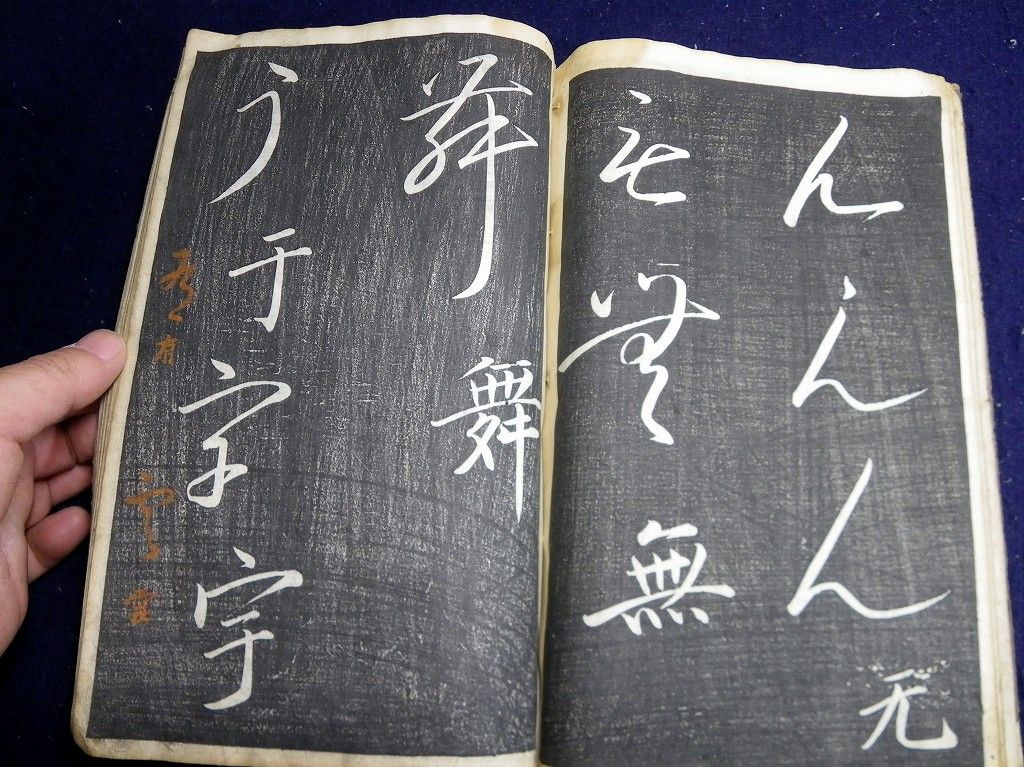 んんん无
む無無
舞舞
う于宇宇